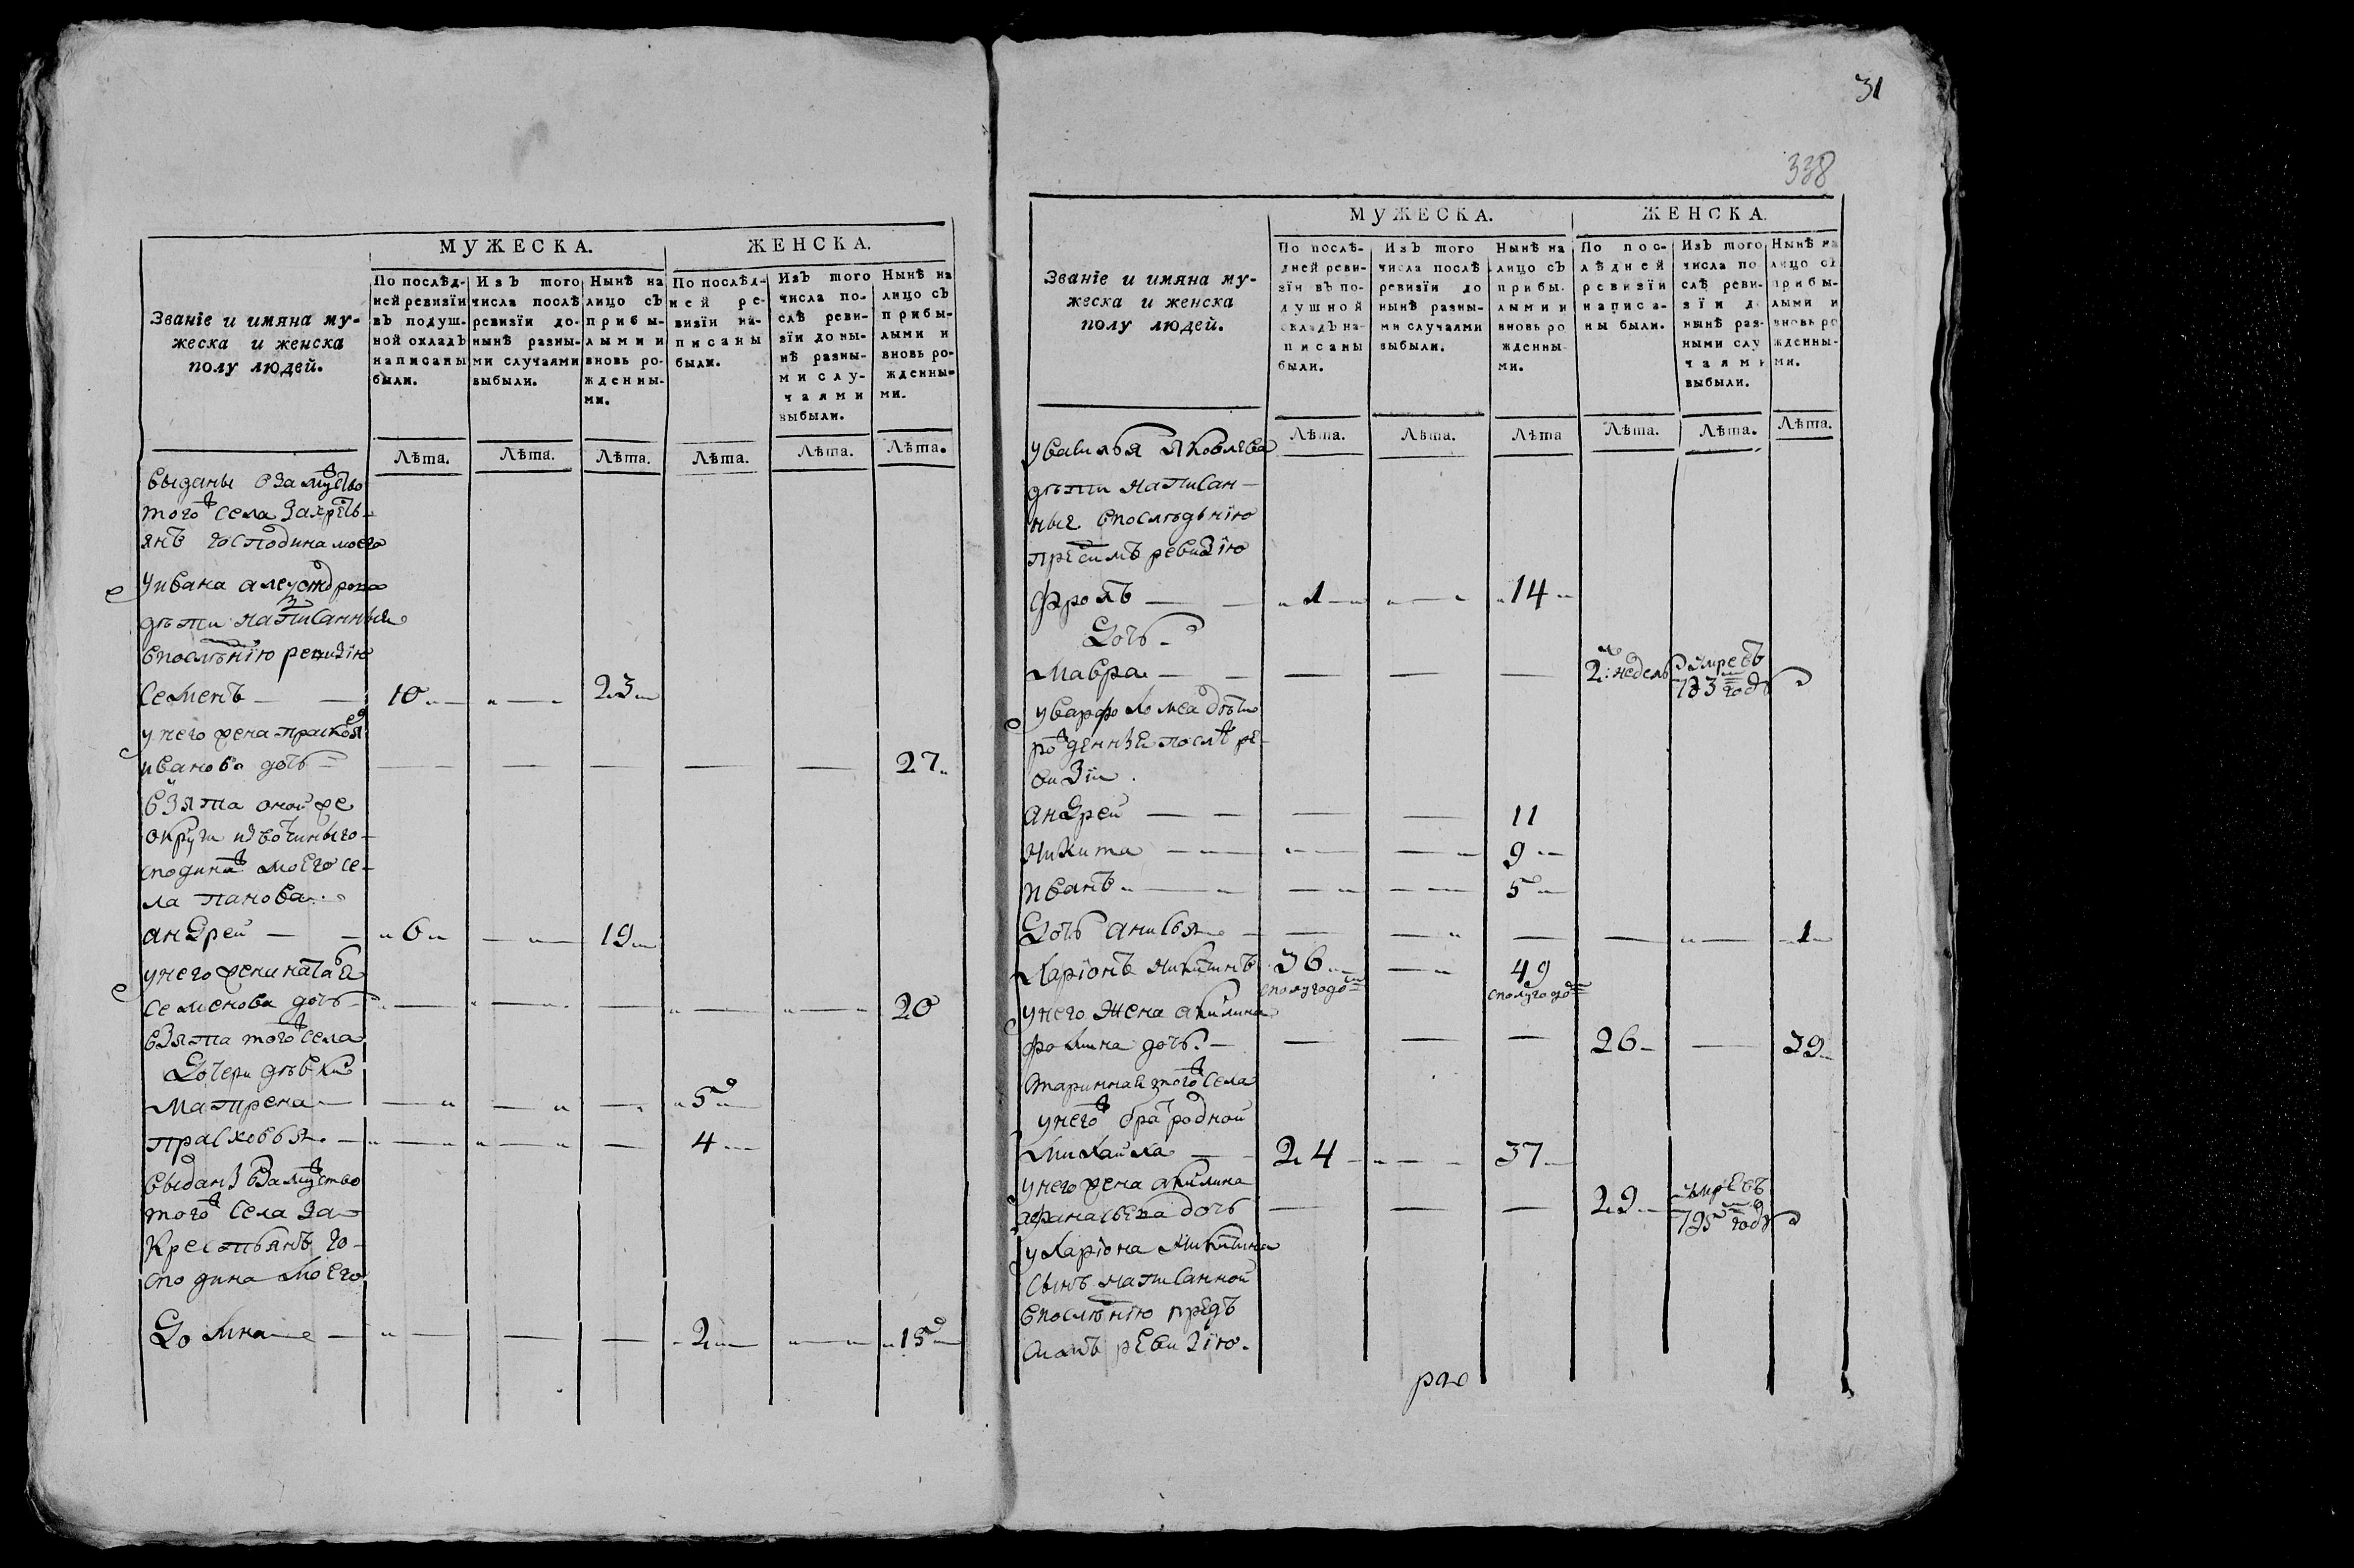 МУЖЕСКА. ЖЕНСКА.
Званіе и имяна му-
жеска и женска
полу людей.
По послѣд-
ней ревизіи
въ подуш-
ной окладъ
написаны
были.
Изъ того
числа послѣ
ревизіи до-
нынѣ разны-
ми случаями
выбыли.
Нынѣ на
лицо съ
прибы-
лыми и
вновь ро-
жденны-
ми.
По послѣд-
ней ре-
визіи на-
писаны
были.
Изъ того
числа по-
слѣ реви-
зіи до ны-
нѣ разны-
ми слу-
чаями
выбыли.
Нынѣ на
лицо съ
прибы-
лыми и
вновь ро-
жденны-
ми.
Лѣта. Лѣта. Лѣта. Лѣта. Лѣта. Лѣта.
выданы взамуство
того села закресть-
янъ господина моего
уивана
дѣти написанныя
впослѣнію ревизію
Семенъ 10 23
унего жена праског
иванова дочь 27
взята оной же
округи извотчины го-
сподина моего се-
ла панова
андрей 6 19
унего жена
семенова дочь 20
взята того села
Дочери дѣвки
Матрена 5
прасковья 4
выданы взамуство
того села за
крестьянъ го-
сподина моего
Домна 2 15
31
338
МУЖЕСКА. ЖЕНСКА.
Званіе и имяна му-
жеска и женска
полу людей.
По послѣ-
дней реви-
зіи въ по-
душной
окладъ на-
писаны
были.
Изъ того
числа послѣ
ревизіи до
нынѣ разны-
ми случаями
выбыли.
Нынѣ на
лицо съ
прибы-
лыми и
вновь ро
жденны-
ми.
По пос-
лѣдней
ревизіи
написа-
ны были.
Изъ того
числа по
слѣ реви-
зіи до
нынѣ раз-
ными слу
чаями
выбыли.
Нынѣ на
лицо съ
прибы-
лыми и
вновь ро
жденны-
ми.
Лѣта. Лѣта. Лѣта Лѣта. Лѣта. Лѣта.
увасилья яковлева
дѣти написан-
ныя впослѣднію
предсимъ ревизію
Фролъ 1 14
Дочь
Мавра 2: недель умре въ
783 году
уварфоломеа дѣти
рожденныи послѣ ре-
визіи
андрей 11
никита 9
иванъ 5
Дочь анисья 1
Ларіонъ никитинъ 36 49
сполугодо сполугодо
унего жена акилина
фомина дочь 26 39
старинная того села
унего брат родной
Михайла 24 37
унего жена акилина
афанасьева дочь 29 умре въ
795 году
уларіона никитина
сынъ написанной
впослѣнію предъ
симъ ревизію